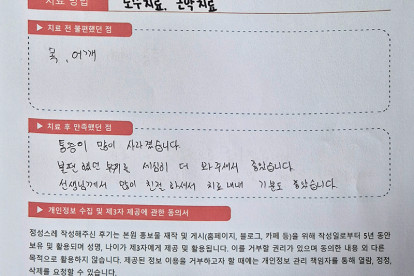 치료 방법 도수치료, 근막치료
▶ 치료 전 불편했던 점
목, 어깨
▶ 치료 후 만족했던 점
통증이 많이 사라졌습니다.
불편했던 부위를 세심히 더 봐주셔서 좋았습니다.
선생님께서 많이 친절하셔서 치료 내내 기분도 좋았습니다.
▶ 개인정보 수집 및 제3자 제공에 관한 동의서
정성스레 작성해주신 후기는 본원 홍보물 재작 및 게시(홈페이지, 블로그, 카페 등)을 위해 작성일로부터 5년 동안
보유 및 활용되며 성명, 나이가 제3자에게 제공 및 활용됩니다. 이를 거부할 권리가 있으며 동의한 내용 외 다른
목적으로 활용하지 않습니다. 제공된 정보 이용을 거부하고자 할 때에는 개인정보 관리 책임자를 통해 열람, 정정,
삭제를 요청할 수 있습니다.